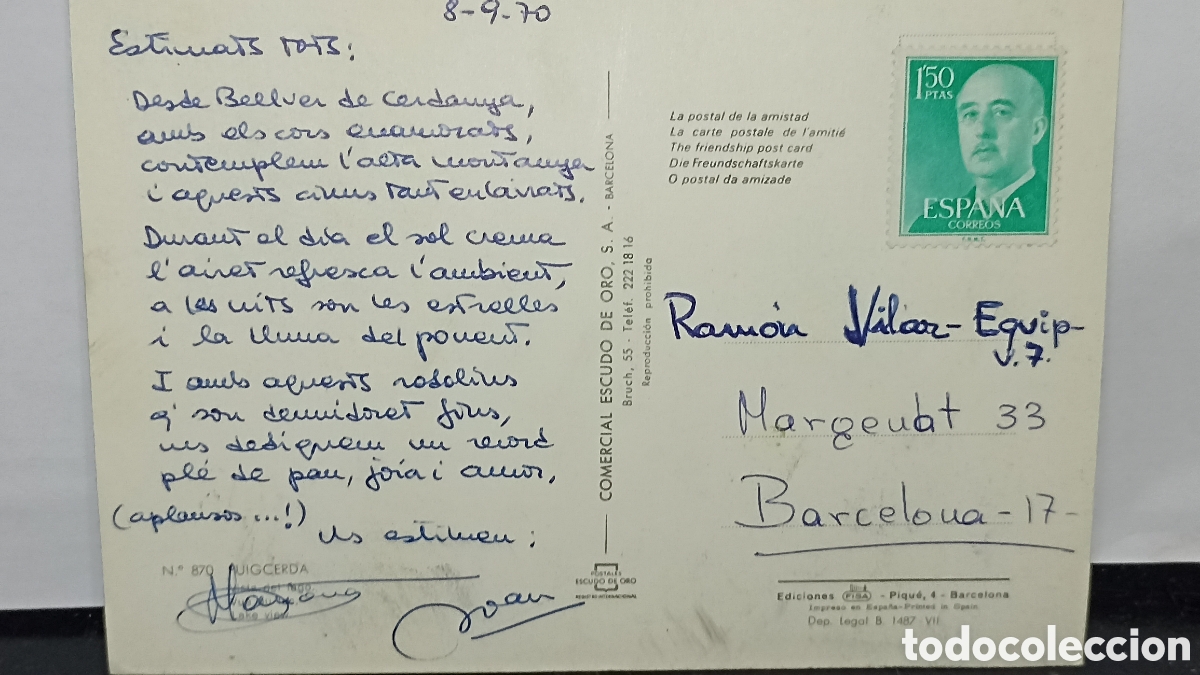 8-9-70
Estimats tots:
Desde Bellver de Cerdanya,
amb els cors enamorats,
contemplem l'alta montanya
i aquests cims tant enlairats.
Durant el dia el sol crema
l'airet refresca l'ambient,
a les nits son les estrelles
i la lluna del ponent.
I amb aquests rodolins
q' son demidoret fins,
us dediquem un record
plé de pau, joia i amor.
(aplausos...!)
Us estimen:
Joan
N.º 870 PUIGCERDA
Lake view
COMERCIAL ESCUDO DE ORO, S. A. - BARCELONA
Bruch, 55 - Teléf. 222 18 16
Reproducción prohibida
POSTALES
ESCUDO DE ORO
REGISTRO INTERNACIONAL
La postal de la amistad
La carte postale de l'amitié
The friendship post card
Die Freundschaftskarte
O postal da amizade
1'50
PTAS
ESPAÑA
CORREOS
F.N.M.T.
Ramón Vilar-Equip-
V.7.
Margenat 33
Barcelona-17-
Ediciones FISA - Piqué, 4 - Barcelona
Impreso en España-Printed in Spain
Dep. Legal B. 1487-VII
todocoleccion